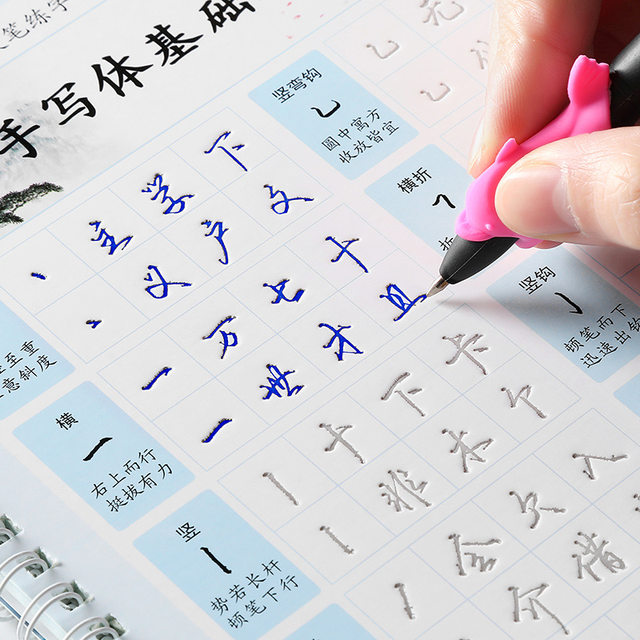 笔练字
手写体基础
丶 主 学 下
义 户 文
一 万 七 十
一 世 才 且
丨 十 下 卡
丨 非 本 个
会 欠 入
介 借
竖弯钩
乚
圆中寓方
收放皆宜
横折
𠃍
折
竖钩
亅
顿笔而下
迅速出钩
至重
意斜度
横
一
右上而行
挺拔有力
竖
丨
势若长杆
顿笔下行